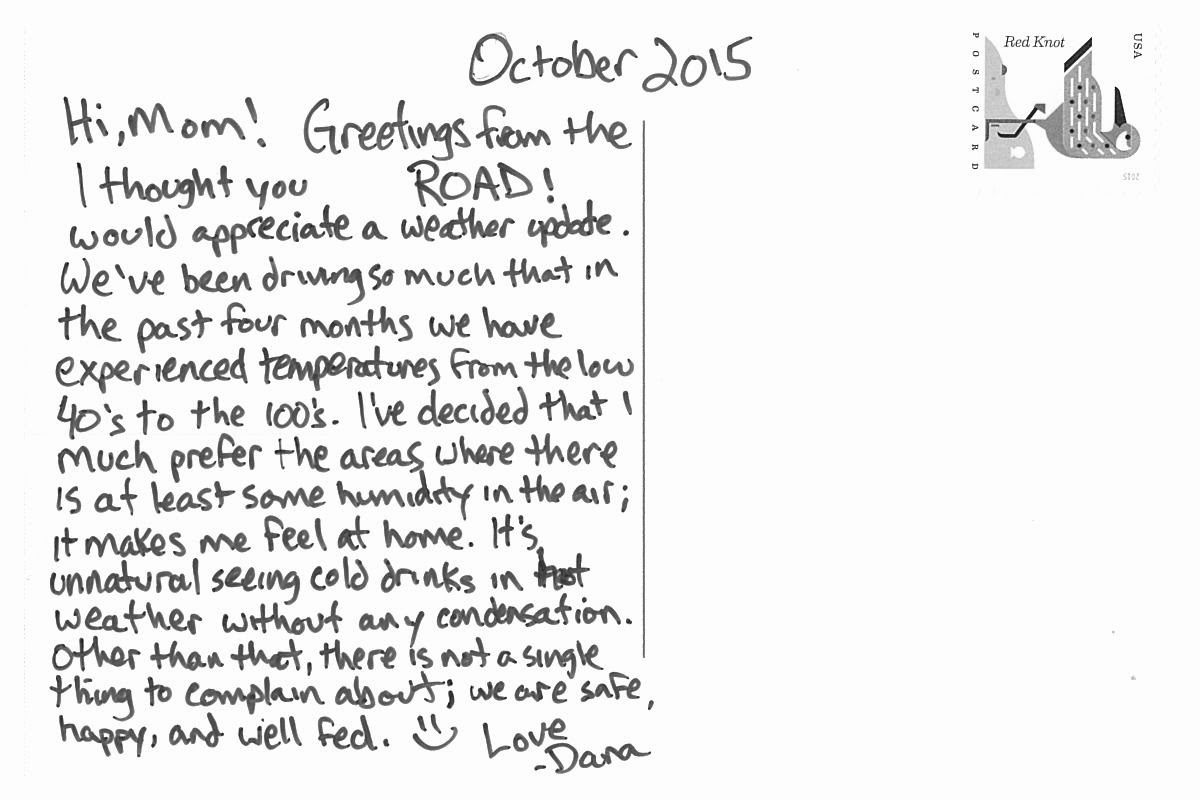 October 2015
Hi, Mom! Greetings from the
ROAD!
I thought you
would appreciate a weather update.
We've been driving so much that in
the past four months we have
experienced temperatures from the low
40's to the 100's. I've decided that I
much prefer the areas where there
is at least some humidity in the air;
it makes me feel at home. It's
unnatural seeing cold drinks in hot
weather without any condensation.
Other than that, there is not a single
thing to complain about; we are safe,
happy, and well fed. :)
Love
-Dana
POSTCARD
Red Knot
USA
2015